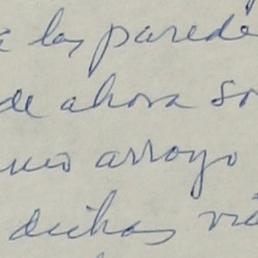 a las parede
de ahora so
uno arroyo
dichas vi